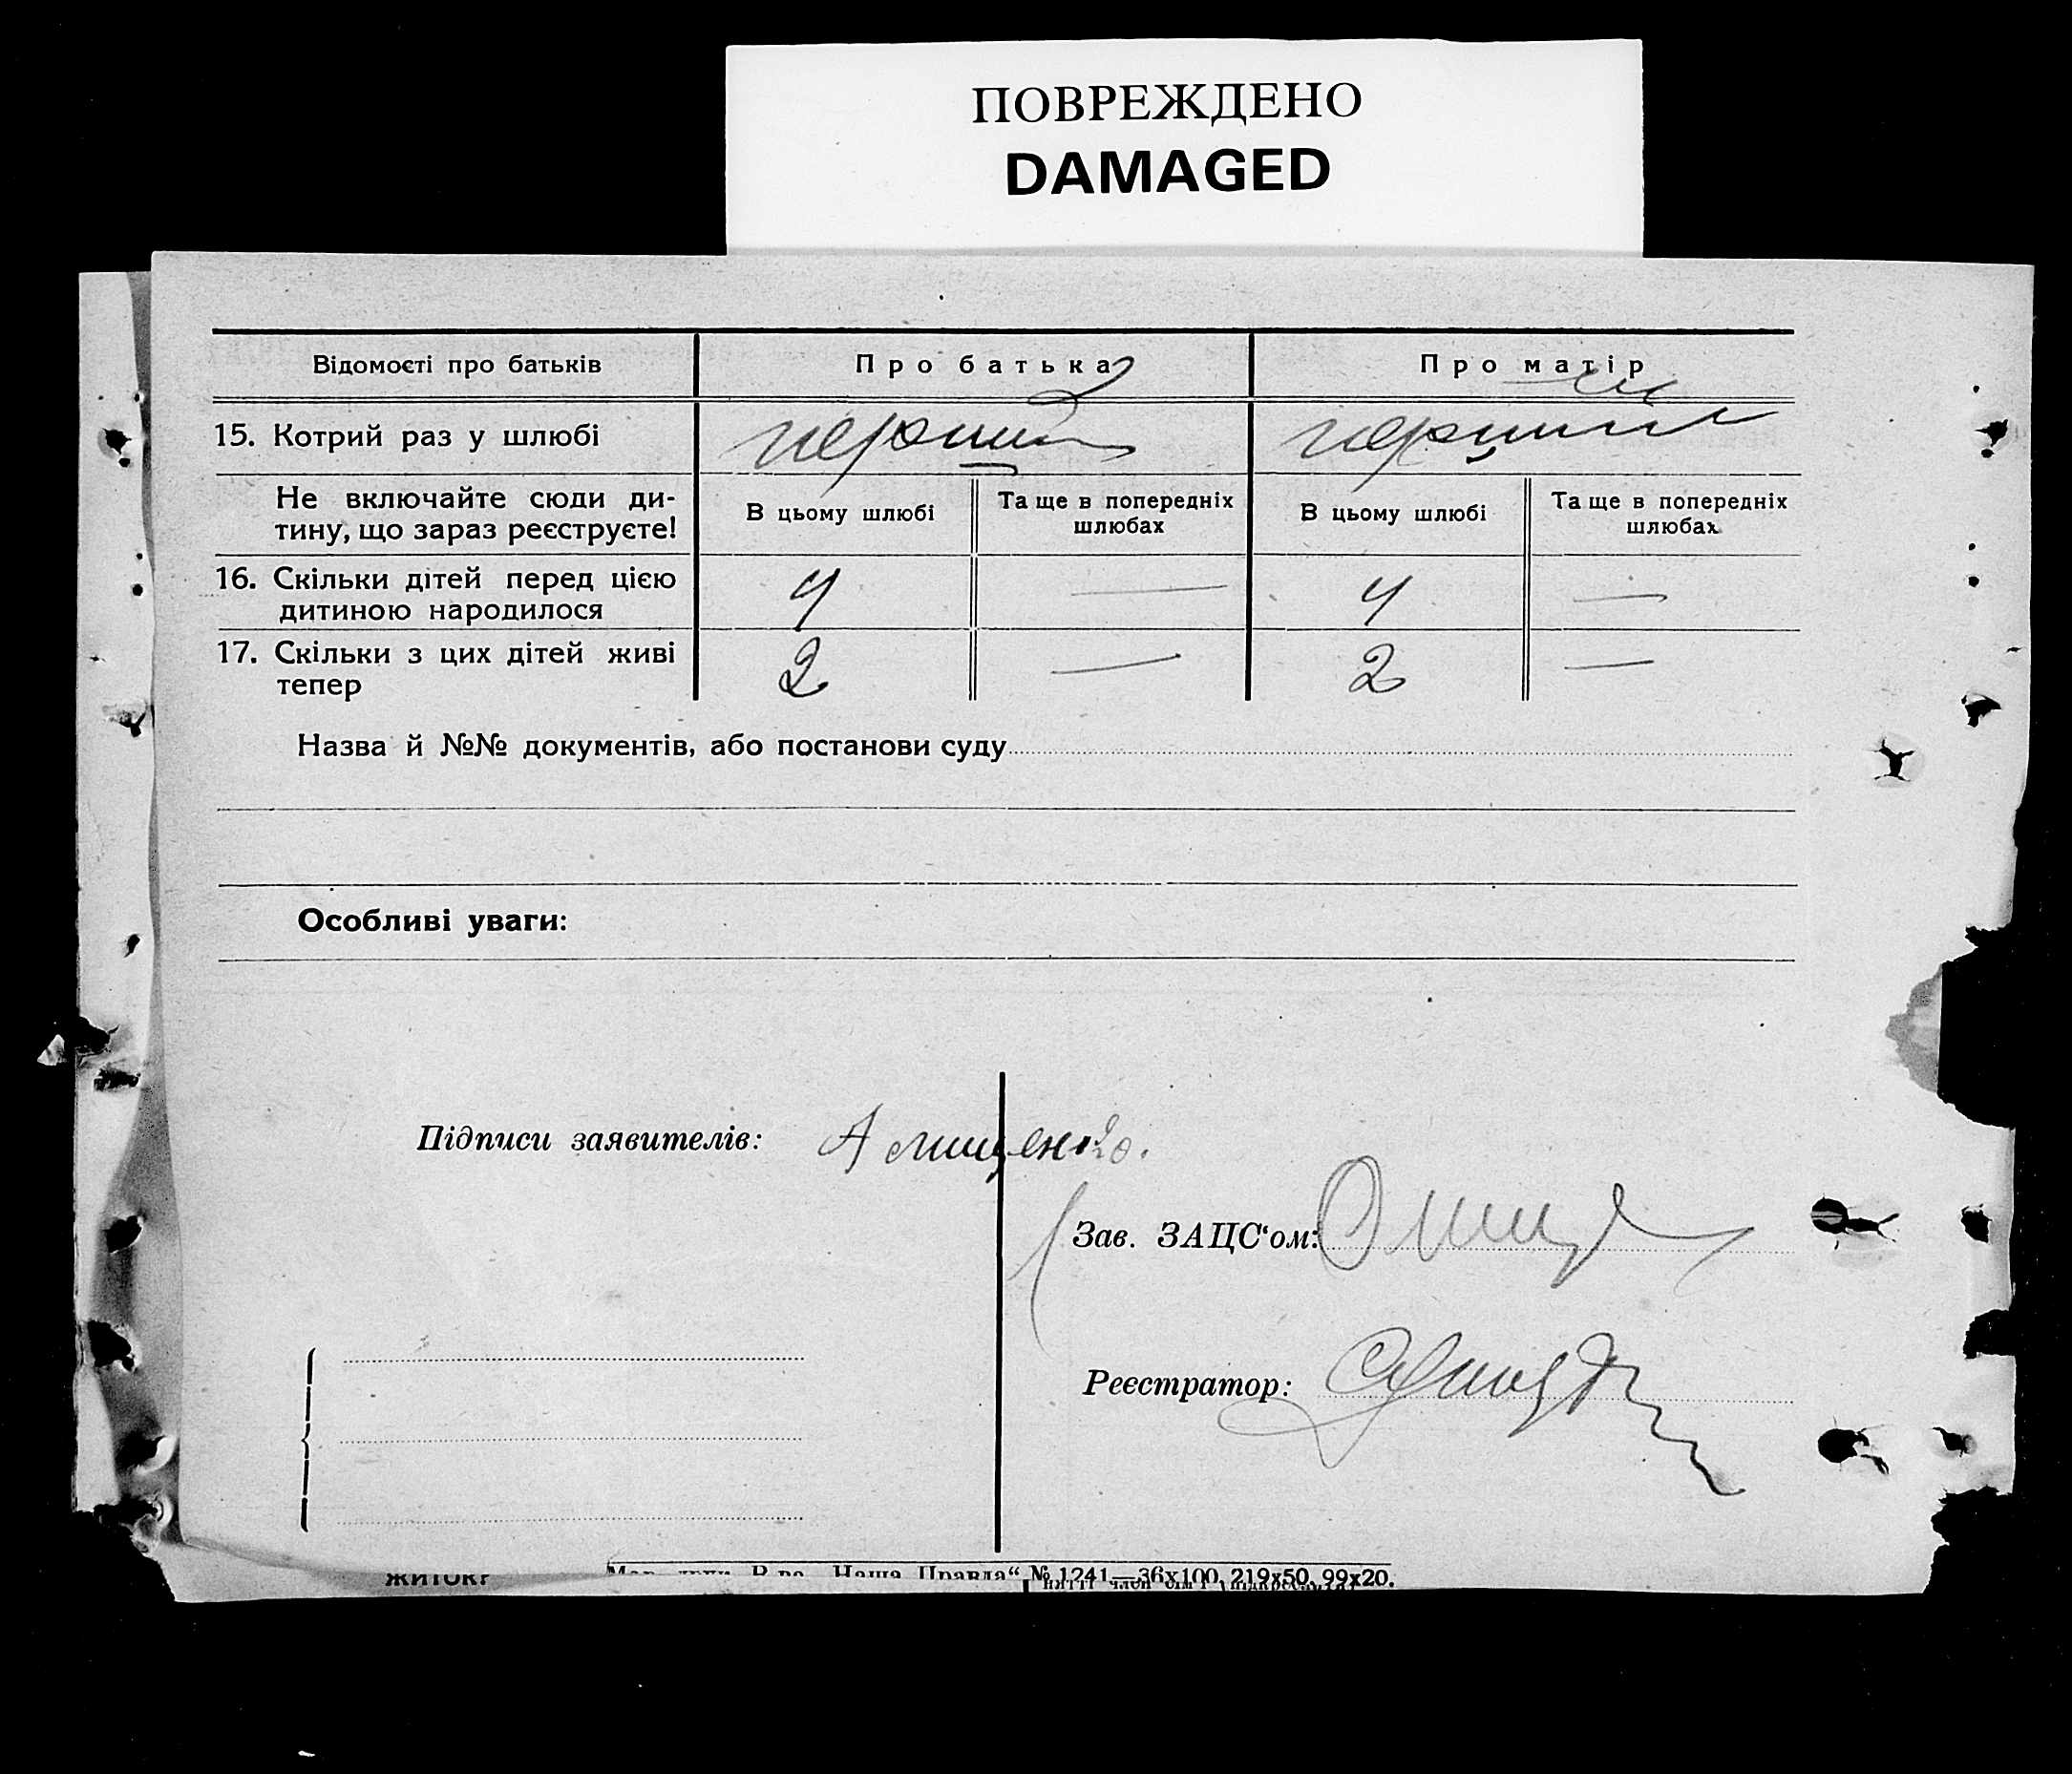 ПОВРЕЖДЕНО
DAMAGED
Відомості про батьків
Про батька
Про матір
15. Котрий раз у шлюбі
перший
перший
Не включайте сюди ди-
тину, що зараз реєструєте!
В цьому шлюбі
Та ще в попередніх
шлюбах
В цьому шлюбі
Та ще в попередніх
шлюбах
16. Скільки дітей перед цією
дитиною народилося
4
—
4
—
17. Скільки з цих дітей живі
тепер
2
—
2
—
Назва й №№ документів, або постанови суду
Особливі уваги:
Підписи заявителів:
А
Зав. ЗАЦС‘ом:
Реєстратор:
Наша Правда“ № 1241—36х100, 219х50, 99х20.